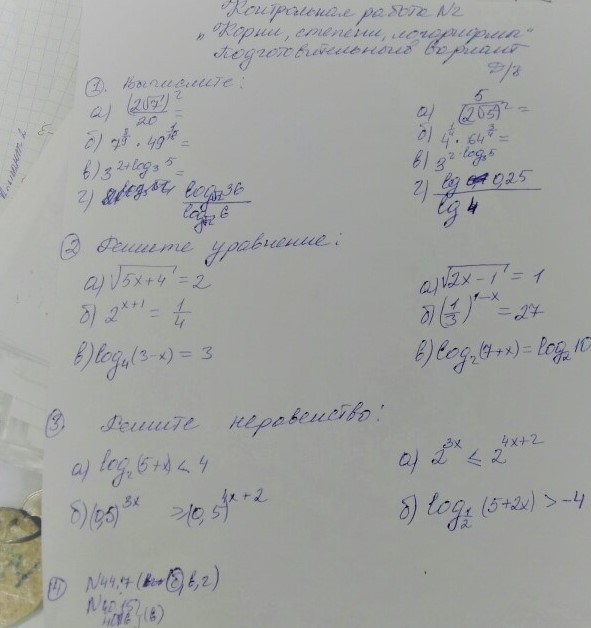 Контрольная работа №2
"Корни, степени, логарифмы"
Подготовительный вариант
Д/з
① Вычислите:
а) (2√7)²/20 =
б) 7^ · 49^ =
в) 3^(2+log₃5) =
г) log 36 / log 6
а) 5/(2√5)² =
б) 4^ · 64^ =
в) 3^(2-log₃5)
г) lg 0,25 / lg 4
② Решите уравнение:
а) √(5x+4) = 2
б) 2^(x+1) = 1/4
в) log₄(3-x) = 3
а) √(2x-1) = 1
б) (1/3)^(1-x) = 27
в) log₂(7+x) = log₂10
③. Решите неравенство:
а) log₂(5+x) < 4
б) (0,5)^(3x) ≥ (0,5)^(4x+2)
а) 2^(3x) ≤ 2^(4x+2)
б) log_(1/2) (5+2x) > -4
④ №44.7 (б, в, г)